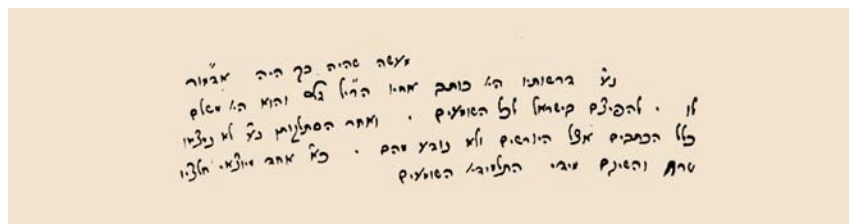 מעשה שהיה כך היה אבמו״ר
נ״ע ברשותיו הא כותב אחיו הר״יל והוא הא משלם
לו . להפיצם בישראל לכל השומעים . ואחר הסתלקותו נ״ע לא נמצאו
כלל הכתבים אצל היורשים ולא נודע מהם . כ״א אחד מיוצאי חלציו
טרח והשיגם מידי התלמידים השומעים